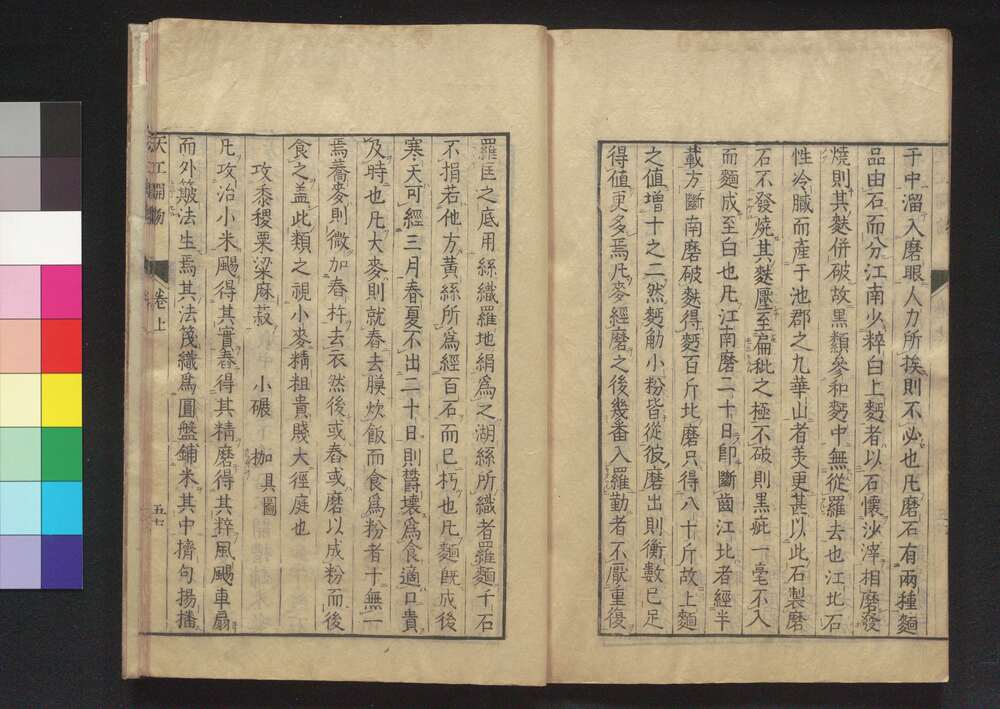 于中溜入磨眼人力所挨則不必也凡磨石有兩種麵
品由石而分江南少粹白上麪者以石懷沙滓相磨發
燒則其麩併破故黑纇參和麪中無從羅去也江北石
性冷膩而產于池郡之九華山者美更甚以此石製磨
石不發燒其麩壓至扁秕之極不破則黑疵一毫不入
而麵成至白也凡江南磨二十日卽斷齒江北者經半
載方斷南磨破麩得麪百斤北磨只得八十斤故上麵
之值增十之二然麪觔小粉皆從彼磨出則衡數已足
得値更多焉凡麥經磨之後幾番入羅勤者不厭重復
羅匡之底用絲織羅地絹爲之湖絲所織者羅麵千石
不損若他方黃絲所爲經百石而已朽也凡麵旣成後
寒天可經三月春夏不出二十日則鬱壞爲食適口貴
及時也凡大麥則就舂去膜炊飯而食爲粉者十無一
焉蕎麥則微加舂杵去衣然後或舂或磨以成粉而後
食之盖此類之視小麥精粗貴賤大徑庭也
攻黍稷粟粱麻菽 小碾 枷具圖
凡攻治小米颺得其實舂得其精磨得其粹風颺車扇
而外簸法生焉其法篾織爲圓盤鋪米其中擠匀揚播
天工開物 卷上 五七